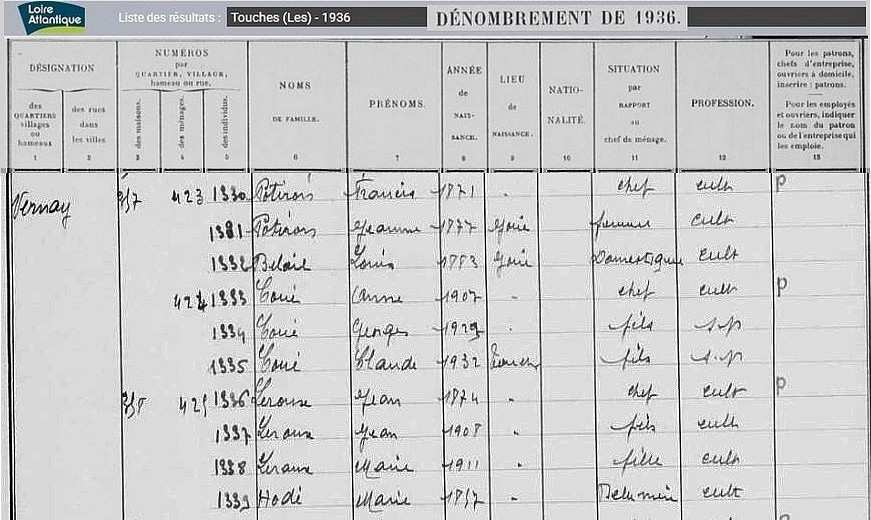 Loire Atlantique
Liste des résultats : Touches (Les) - 1936
DÉNOMBREMENT DE 1936.
DÉSIGNATION
des QUARTIERS villages ou hameaux
des rues dans les villes
NUMÉROS par QUARTIER, VILLAGE, hameau ou rue.
des maisons.
des ménages.
des individus.
NOMS DE FAMILLE.
PRÉNOMS.
ANNÉE de NAIS- SANCE.
LIEU de NAISSANCE.
NATIO- NALITÉ.
SITUATION par RAPPORT au chef de ménage.
PROFESSION.
Pour les patrons, chefs d'entreprise, ouvriers à domicile, inscrire : patrons.
Pour les employés et ouvriers, indiquer le nom du patron ou de l'entreprise qui les emploie.
1 2 3 4 5 6 7 8 9 10 11 12 13
Vernay 423 1330 Potiron Francis 1871 chef cult P
1331 Potiron Jeanne 1877 femme cult
1332 Belair Louis 1883 Domestique cult
424 1333 Coué Anne 1907 " chef cult P
1334 Coué Georges 1929 " fils s.p
1335 Coué Claude 1932 Touches fils s.p
425 1336 Leroux Jean 1874 " chef cult P
1337 Leroux Jean 1908 " fils cult
1338 Leroux Marie 1911 " fille cult
1339 Hodé Marie 1857 " cult